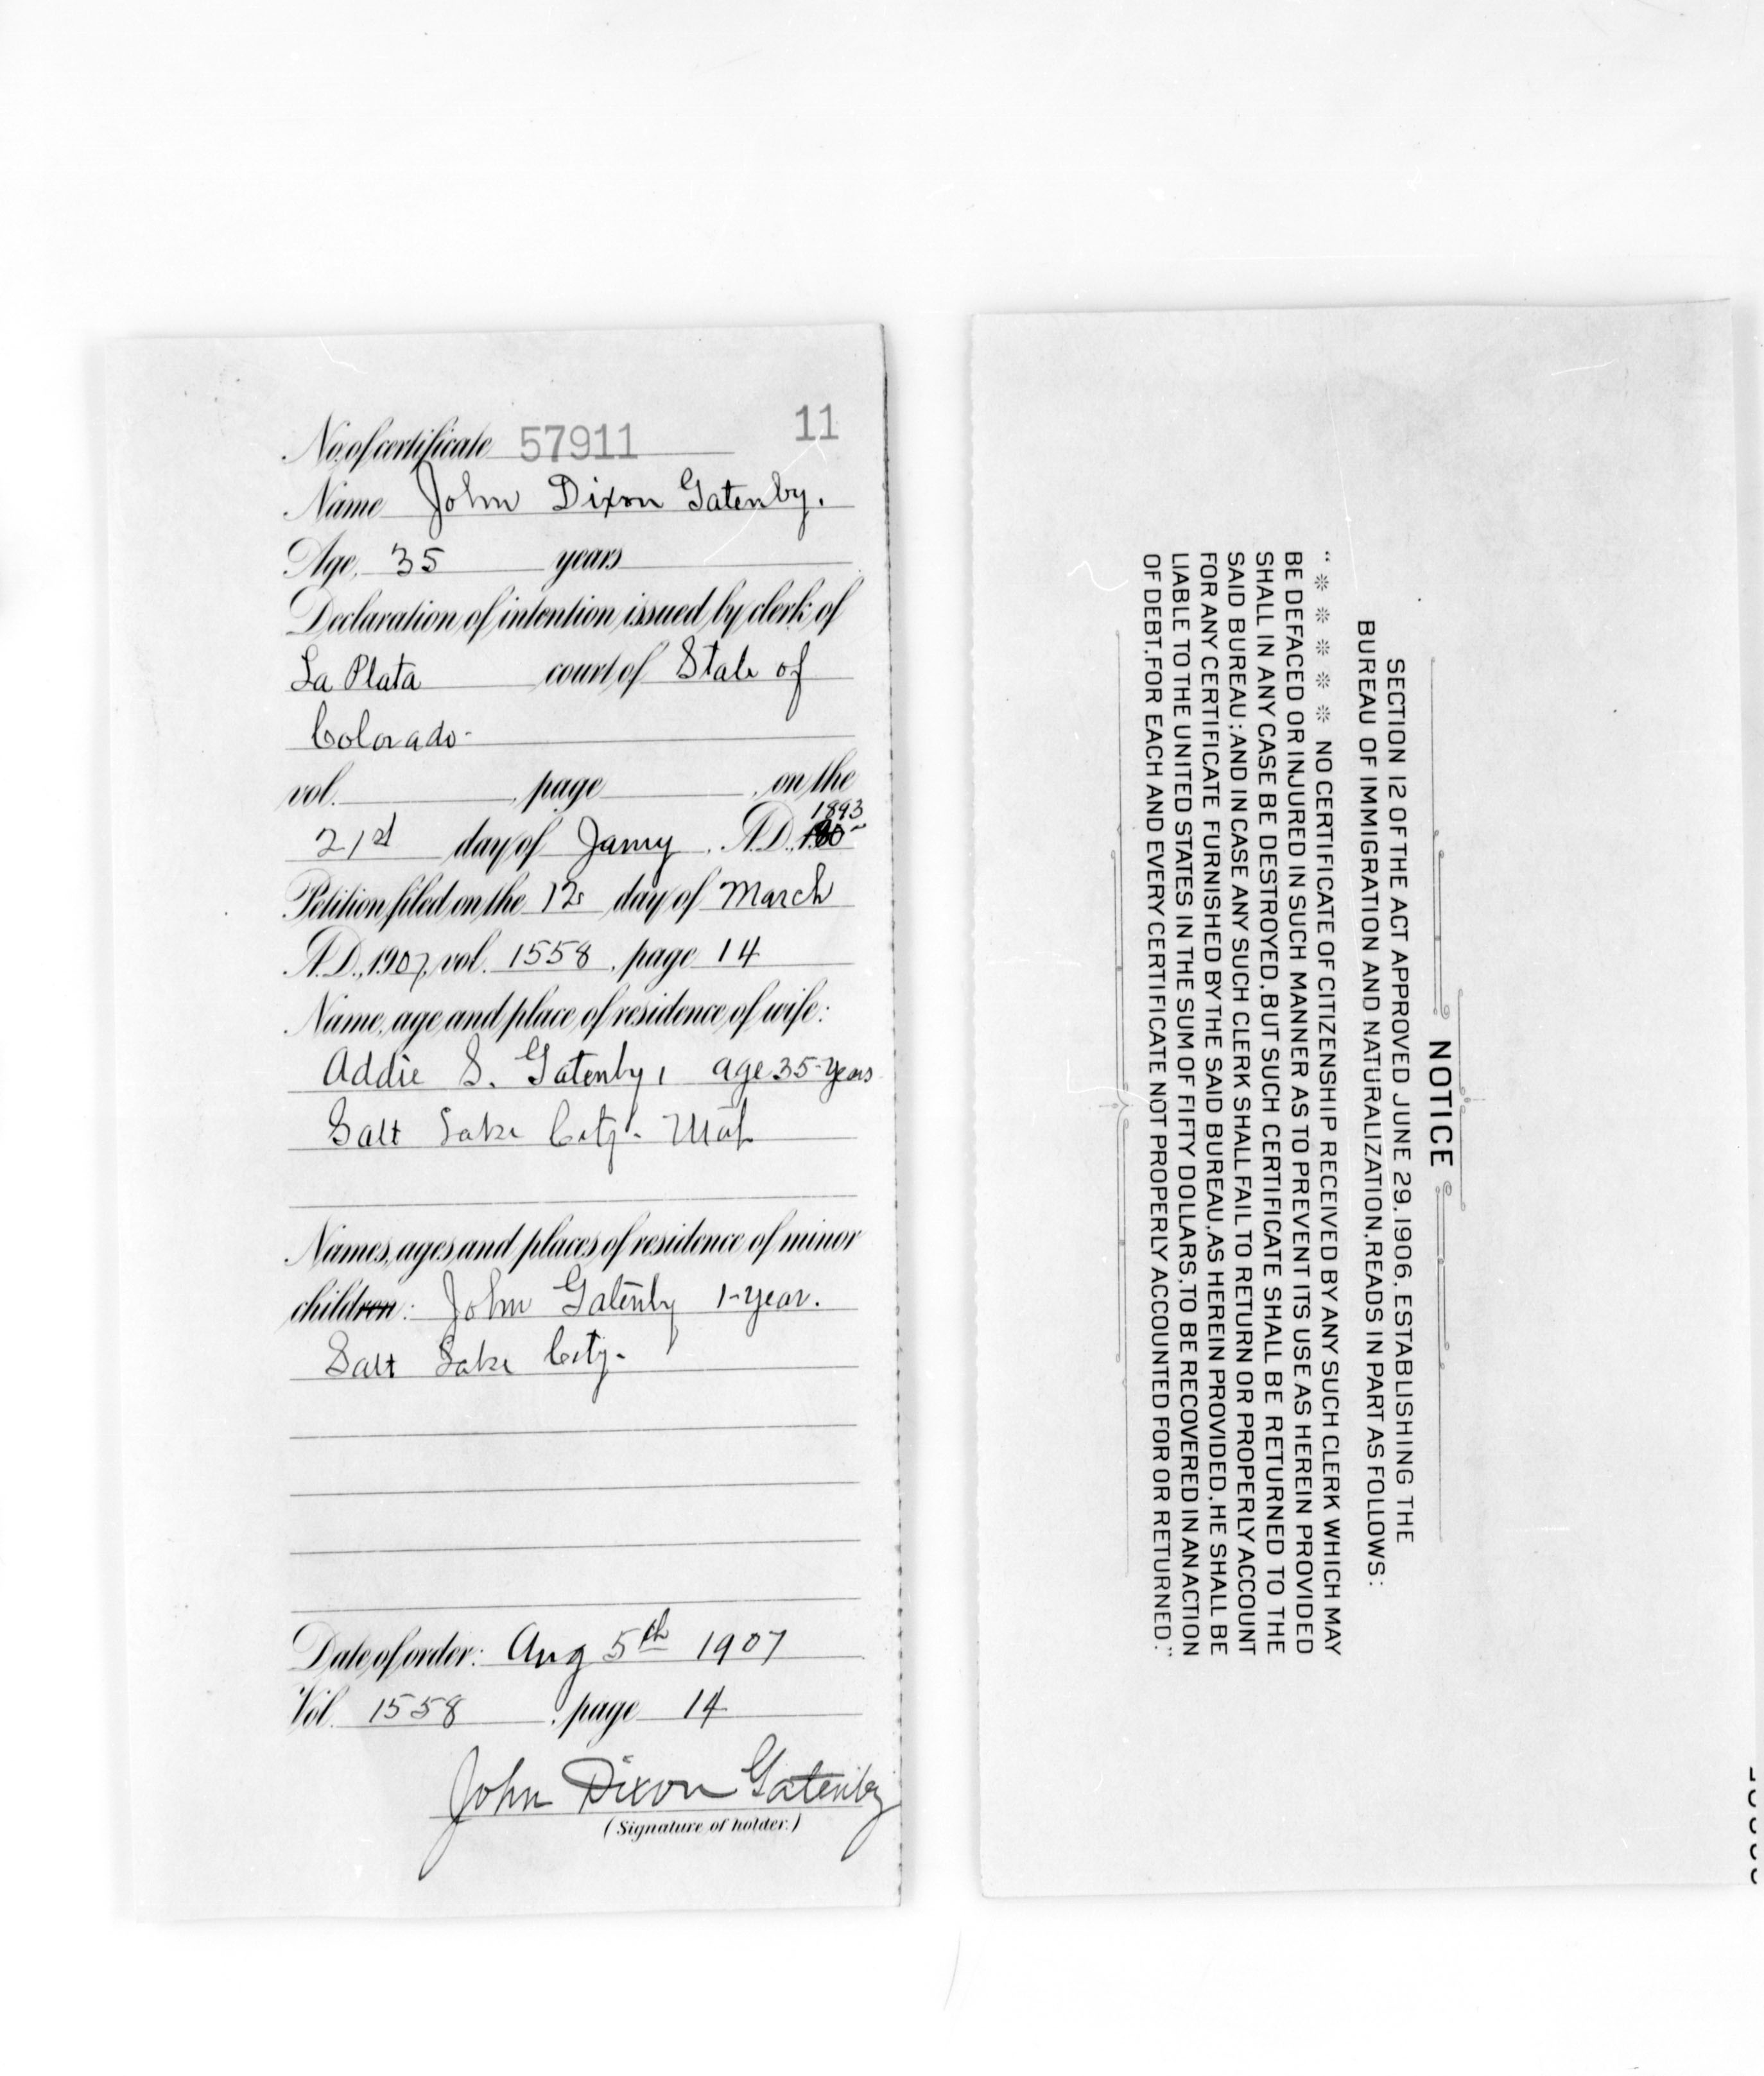 No. of certificate 57911 11
Name John Dixon Gatenby.
Age, 35 years
Declaration of intention issued by clerk of
La Plata court of State of
Colorado-
vol. , page , on the
1893
21st day of Jany, A.D., 190
Petition filed on the 12 day of March
A.D., 1907, vol. 1558, page 14
Name, age and place of residence of wife:
Addie S. Gatenby, age 35-years
Salt Lake City. Utah
Names, ages and places of residence of minor
children: John Gatenby 1-year.
Salt Lake City-
Date of order: Aug 5th 1907
Vol. 1558, page 14
John Dixon Gatenby
(Signature of holder.)
NOTICE
SECTION 12 OF THE ACT APPROVED JUNE 29, 1906, ESTABLISHING THE
BUREAU OF IMMIGRATION AND NATURALIZATION, READS IN PART AS FOLLOWS:
"※ ※ ※ ※ ※ NO CERTIFICATE OF CITIZENSHIP RECEIVED BY ANY SUCH CLERK WHICH MAY
BE DEFACED OR INJURED IN SUCH MANNER AS TO PREVENT ITS USE AS HEREIN PROVIDED
SHALL IN ANY CASE BE DESTROYED, BUT SUCH CERTIFICATE SHALL BE RETURNED TO THE
SAID BUREAU; AND IN CASE ANY SUCH CLERK SHALL FAIL TO RETURN OR PROPERLY ACCOUNT
FOR ANY CERTIFICATE FURNISHED BY THE SAID BUREAU, AS HEREIN PROVIDED, HE SHALL BE
LIABLE TO THE UNITED STATES IN THE SUM OF FIFTY DOLLARS, TO BE RECOVERED IN AN ACTION
OF DEBT, FOR EACH AND EVERY CERTIFICATE NOT PROPERLY ACCOUNTED FOR OR RETURNED."